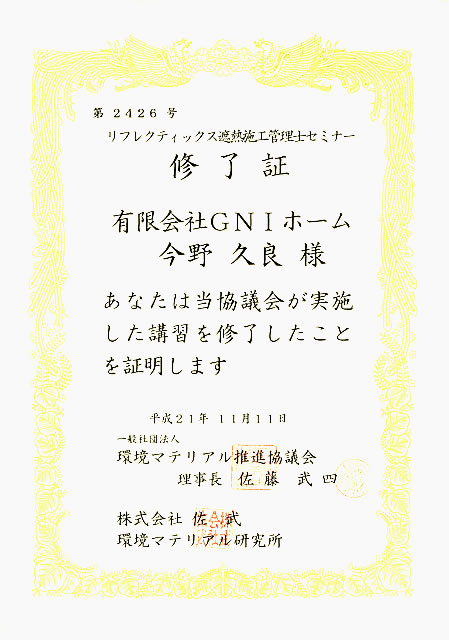 第 2426 号
リフレクティックス遮熱施工管理士セミナー
修了証
有限会社GNIホーム
今野 久良 様
あなたは当協議会が実施
した講習を修了したこと
を証明します
平成21年 11月11日
一般社団法人
環境マテリアル推進協議会
理事長 佐藤 武四
株式会社 佐武
環境マテリアル研究所